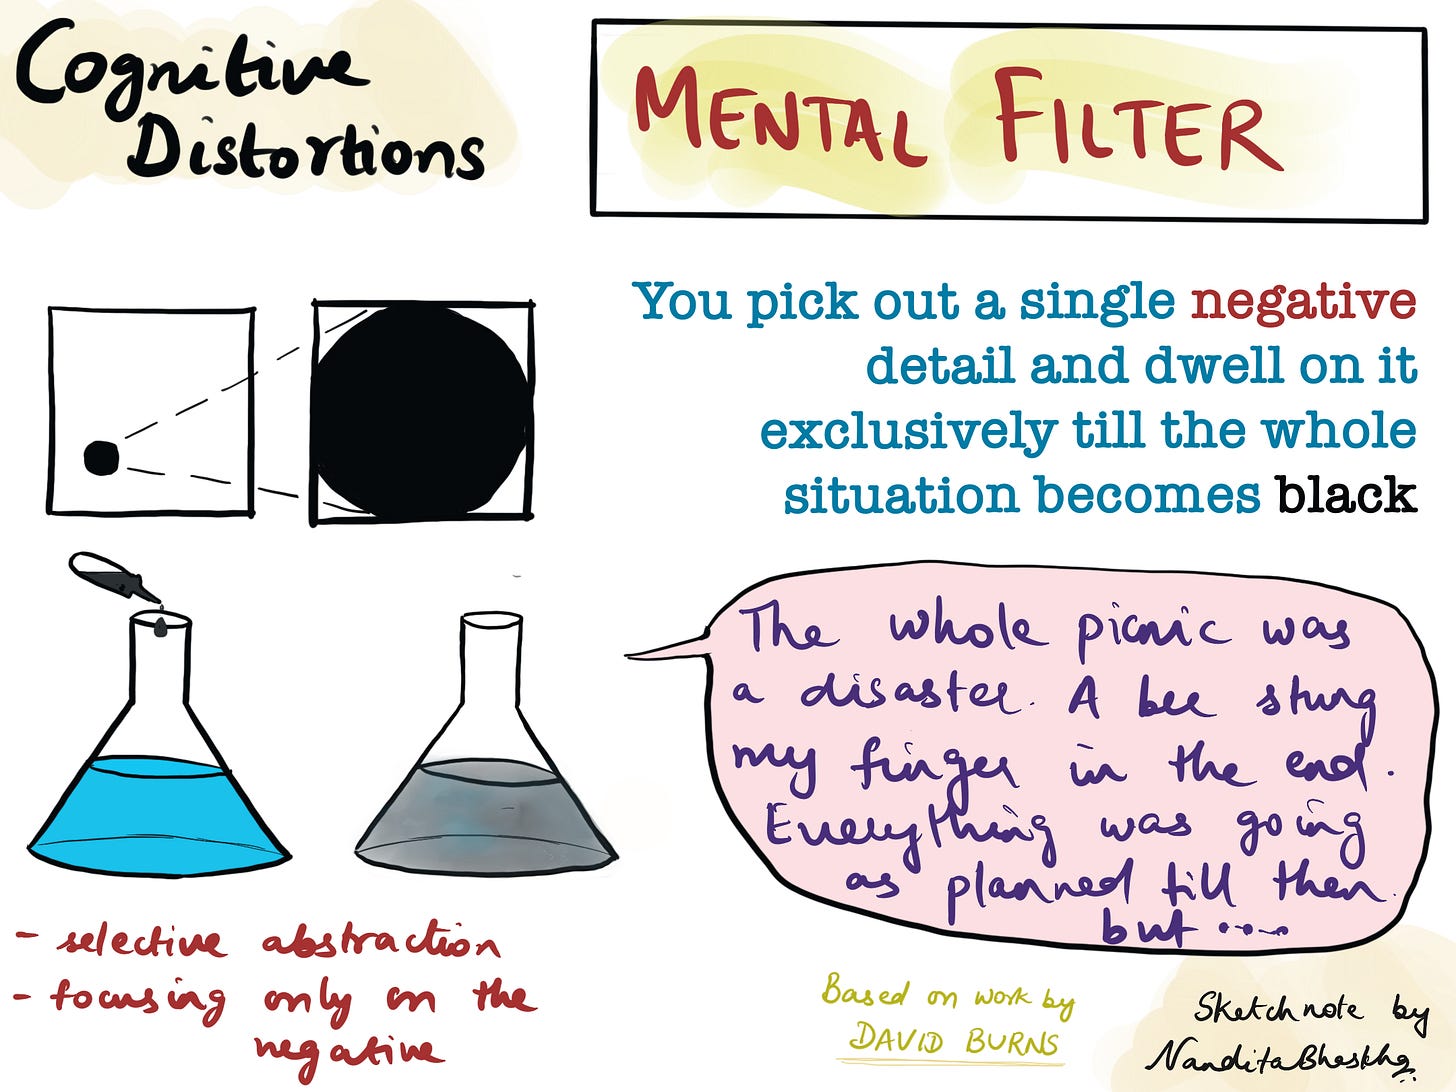 Cognitive
Distortions
MENTAL FILTER
You pick out a single negative
detail and dwell on it
exclusively till the whole
situation becomes black
The whole picnic was
a disaster. A bee stung
my finger in the end.
Everything was going
as planned till then.
but ....
- selective abstraction
- focusing only on the
negative
Based on work by
DAVID BURNS
Sketchnote by
Nandita